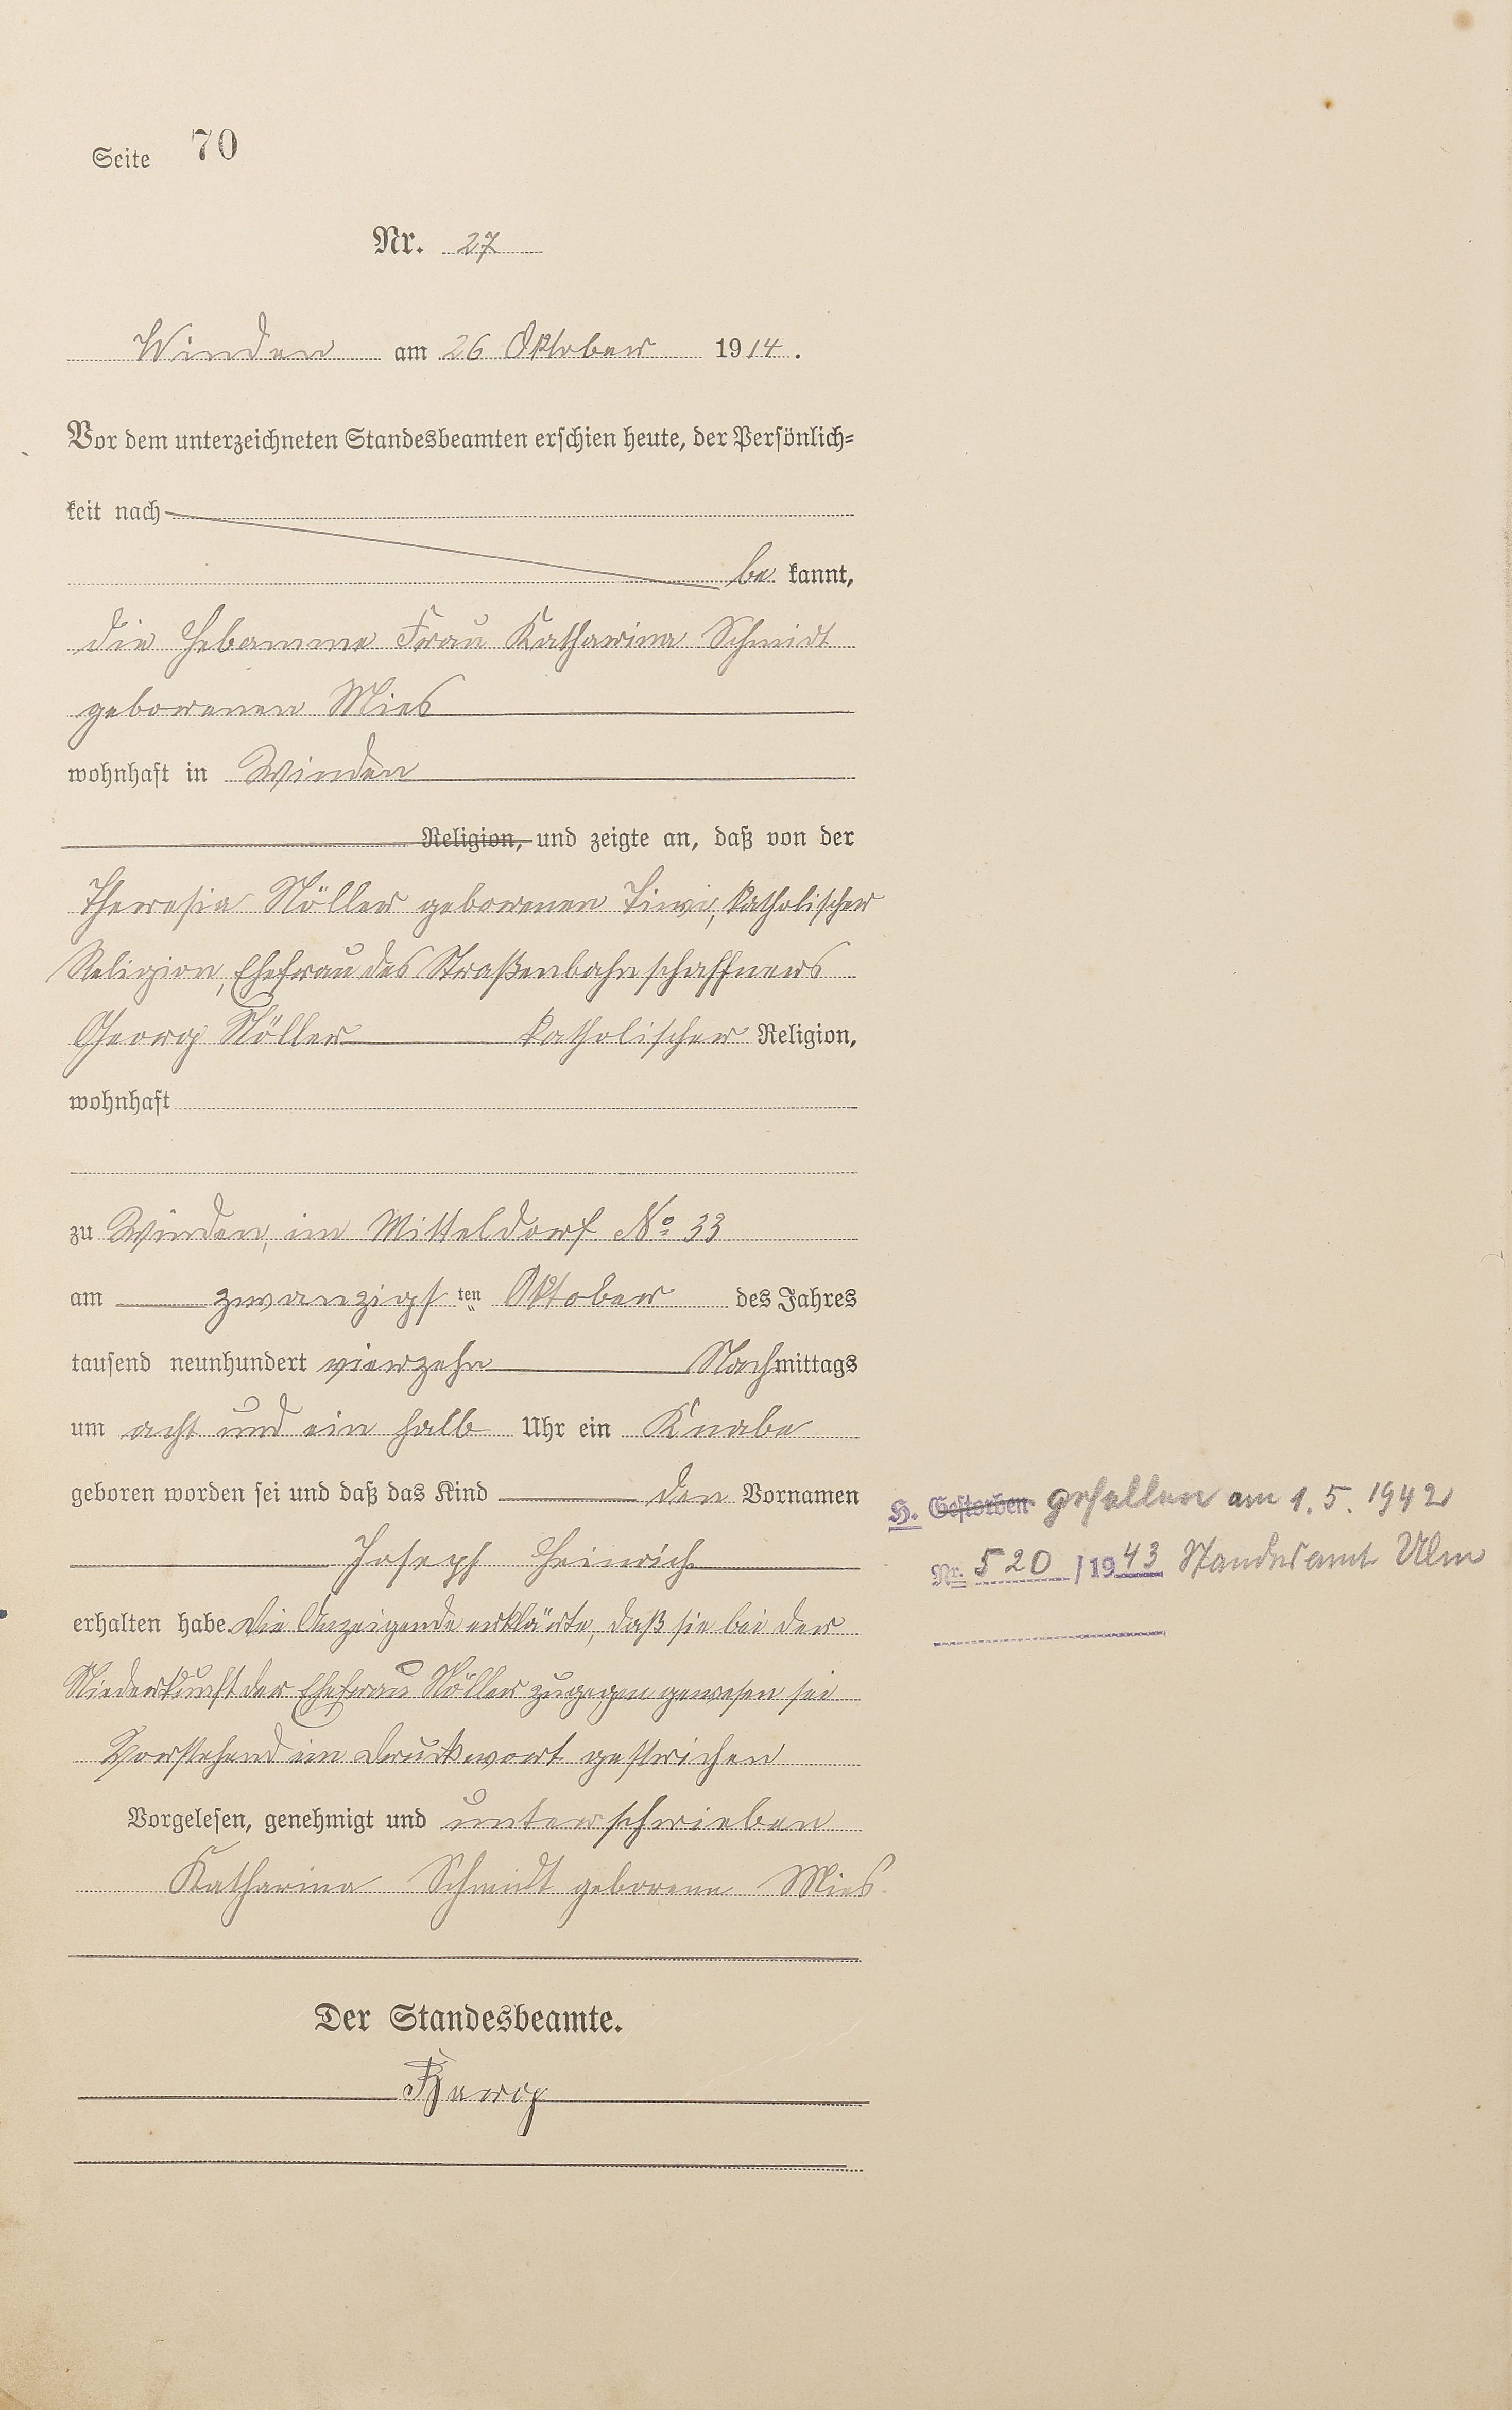 Seite 70
Nr. 27
Winden am 26 Oktober 1914.
Vor dem unterzeichneten Standesbeamten erschien heute, der Persönlich-
keit nach
be kannt,
die Hebamme Frau Katharina Schmidt
geborenen Mies
wohnhaft in Winden
Religion, und zeigte an, daß von der
Theresia Nöller geborenen katholischer
Religion, Ehefrau des Straßenbahnschaffners
Georg Nöller katholischer Religion,
wohnhaft
zu Winden, im Mitteldorf No 33
am zwanzigsten Oktober des Jahres
tausend neunhundert vierzehn Nachmittags
um acht und ein halb Uhr ein Knabe
geboren worden sei und daß das Kind den Vornamen
Joseph Heinrich
erhalten habe. Die Anzeigende erklärte, daß sie bei der
Niederkunft der Ehefrau Nöller zugegen gewesen sei
Vorstehend ein Druckwort gestrichen
Vorgelesen, genehmigt und unterschrieben
Katharina Schmidt geborene Mies
Der Standesbeamte.
H. Gestorben gefallen am 1.5.1942
Nr. 520 /1943 Standesamt Ulm